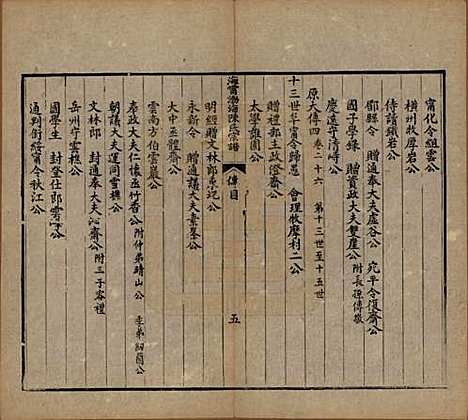 甯化令組雲公
橫州牧厚岩公
侍讀鐵岩公
鄞縣令 贈通奉大夫虛谷公 宛平令復齋公
國子學錄 贈資政大夫雙崖公 附長孫傳敬
慶遠守清嶹公
原大傳四 卷二十六 第十三世至十五世
十三世阜甯令歸愚 會理牧摩利二公
贈禮部主政澄齋公
太學雒園公
海甯渤海陳氏宗譜 傳目 五
明經贈文林郎志冶公
永新令 贈通議大夫素學公
大中丞體齋公
雲南方伯雲巖公
奉政大夫仁懷丞竹香公 附仲弟晴山公 季弟紉蘭公
朝議大夫運同雪樵公
文林郎 封通奉大夫沁齋公 附三子容禮
岳州守雲極公
國學生 封登仕郎霽谷公
通判銜餋甯令秋江公